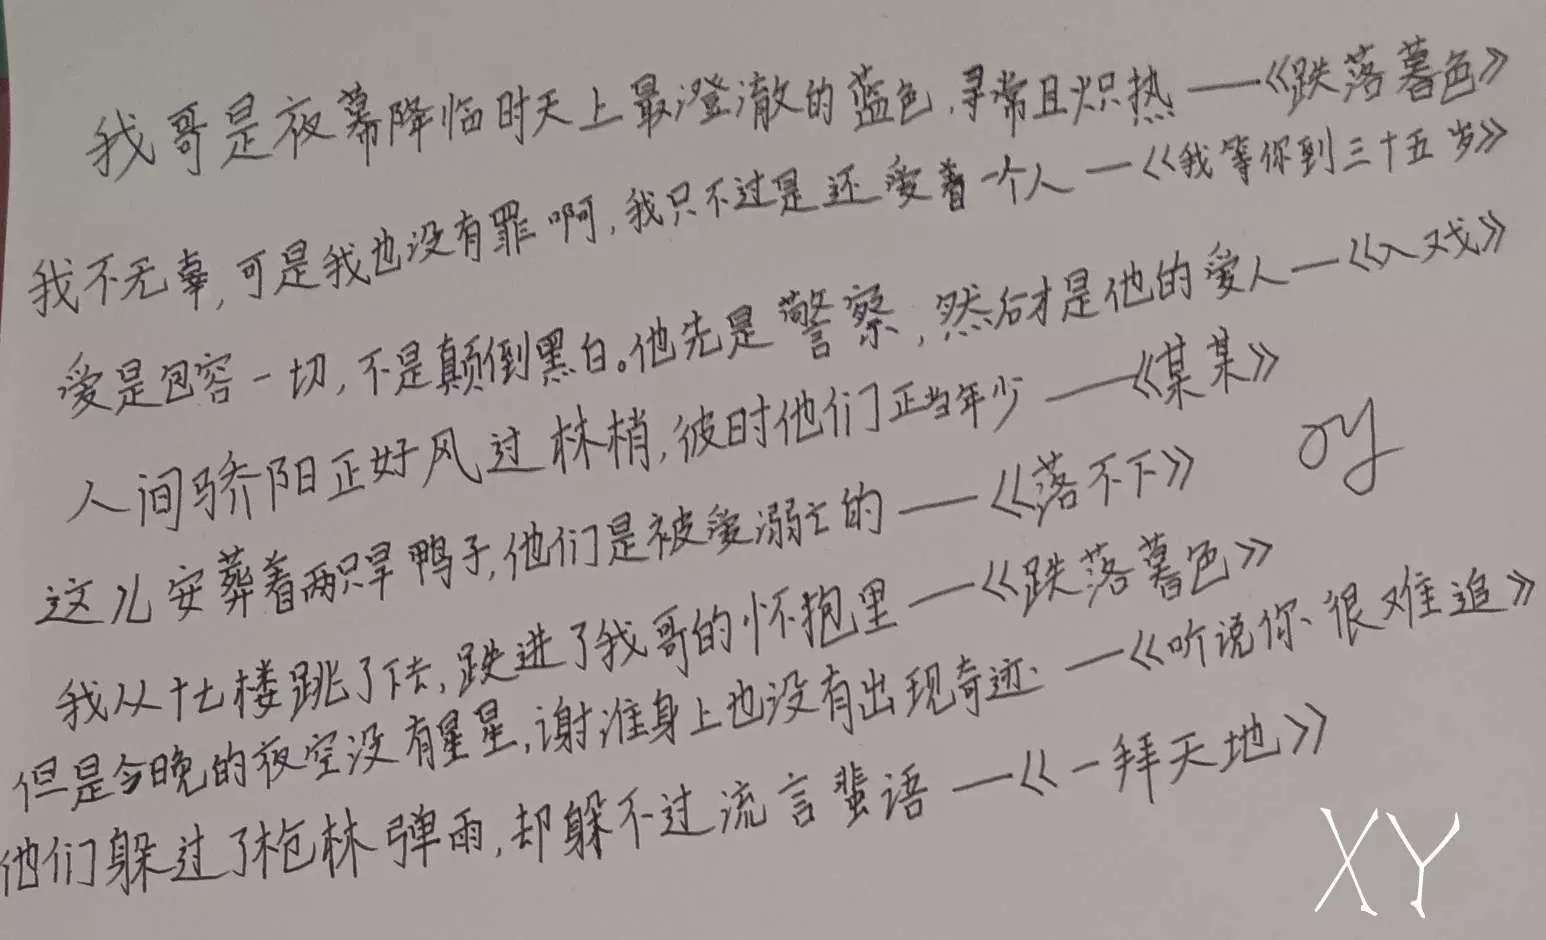 我哥是夜幕降临时天上最澄澈的蓝色,寻常且炽热——《跌落暮色》
我不无辜,可是我也没有罪啊,我只不过是还爱着一个人—《我等你到三十五岁》
爱是包容一切,不是颠倒黑白。他先是警察,然后才是他的爱人—《入戏》
人间骄阳正好风过林梢,彼时他们正当年少——《某某》
这儿安葬着两只旱鸭子,他们是被爱溺亡的——《落不下》
我从十七楼跳了下去,跌进了我哥的怀抱里—《跌落暮色》
但是今晚的夜空没有星星,谢淮身上也没有出现奇迹.—《听说你很难追》
他们躲过了枪林弹雨,却躲不过流言蜚语—《一拜天地》
XY